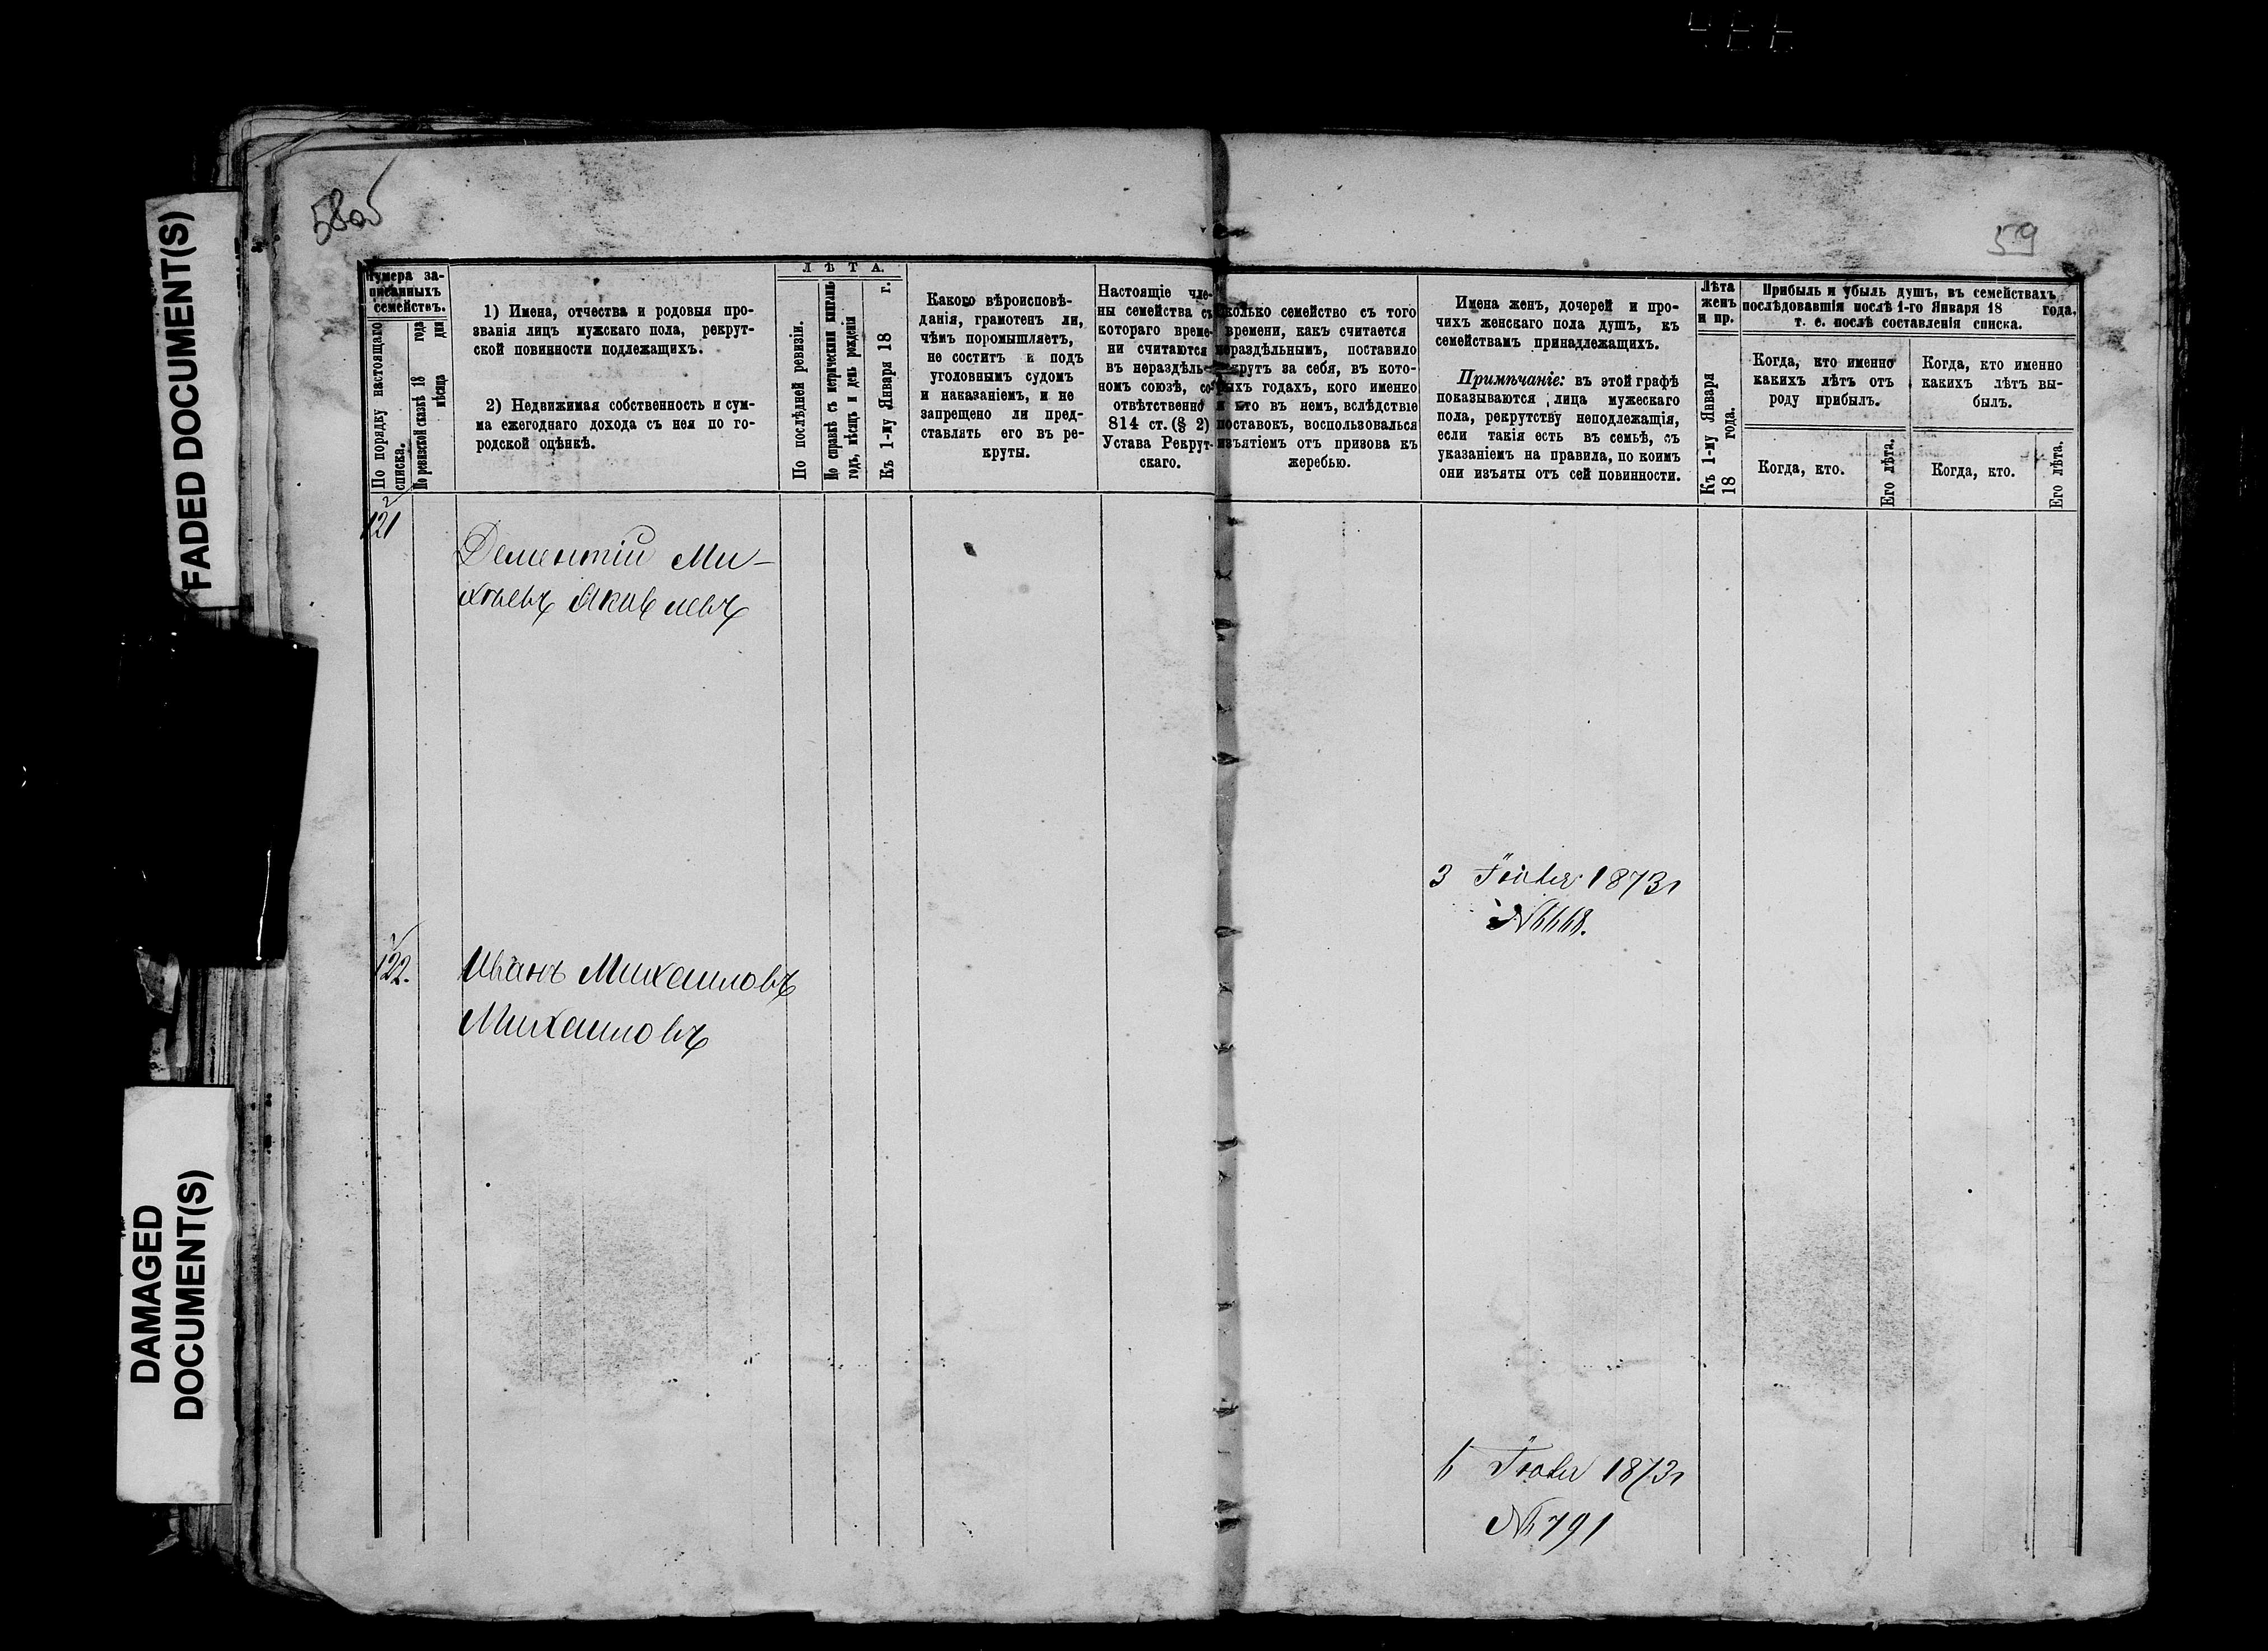 58об
59
FADED DOCUMENT(S)
DAMAGED
DOCUMENT(S)
Нумера за-
писанныхъ
семействъ.
По порядку настоящаго
списка.
По ревизской сказкѣ 18 года
мѣсяца дня
1) Имена, отчества и родовыя про-
званія лицъ мужскаго пола, рекрут-
ской повинности подлежащихъ.
2) Недвижимая собственность и сум-
ма ежегоднаго дохода съ нея по го-
родской оцѣнкѣ.
ЛѢТА.
По послѣдней ревизіи.
По справкѣ съ метрическими книгами
годъ, мѣсяцъ и день рожденія
Къ 1-му Января 18 г.
Какого вѣроисповѣ-
данія, грамотенъ ли,
чѣмъ поромышляетъ,
не соститъ и подъ
уголовнымъ судомъ
и наказаніемъ, и не
запрещено ли пред-
ставлять его въ ре-
круты.
Настоящіе чле-
ны семейства съ
котораго време-
ни считаются
въ нераздѣль-
номъ союзѣ, со-
отвѣтственно
814 ст. (§ 2)
Устава Рекрут-
скаго.
Сколько семейство съ того
времени, какъ считается
нераздѣльнымъ, поставило
рекрутъ за себя, въ кото-
рыхъ годахъ, кого именно
и кто въ немъ, вслѣдствіе
поставокъ, воспользовался
изъятіемъ отъ призова къ
жеребью.
Имена женъ, дочерей и про-
чихъ женскаго пола душъ, къ
семействамъ принадлежащихъ.
Примѣчаніе: въ этой графѣ
показываются лица мужескаго
пола, рекрутству неподлежащія,
если такія есть въ семьѣ, съ
указаніемъ на правила, по коимъ
они изъяты отъ сей повинности.
Лѣта
женъ
и пр.
Къ 1-му Января
18 года.
Прибыль и убыль душъ, въ семействахъ
послѣдовавшія послѣ 1-го Января 18 года.
т. е. послѣ составленія списка.
Когда, кто именно
какихъ лѣтъ отъ
роду прибылъ.
Когда, кто именно
какихъ лѣтъ вы-
былъ.
Когда, кто.
Его лѣта.
Когда, кто.
Его лѣта.
121
Дементій Ми-
хѣевъ Яковлевъ
3 Іюля 1873 г
122.
Иванъ Михаиловъ
Михаиловъ
Іюля 1873 г
№ 791